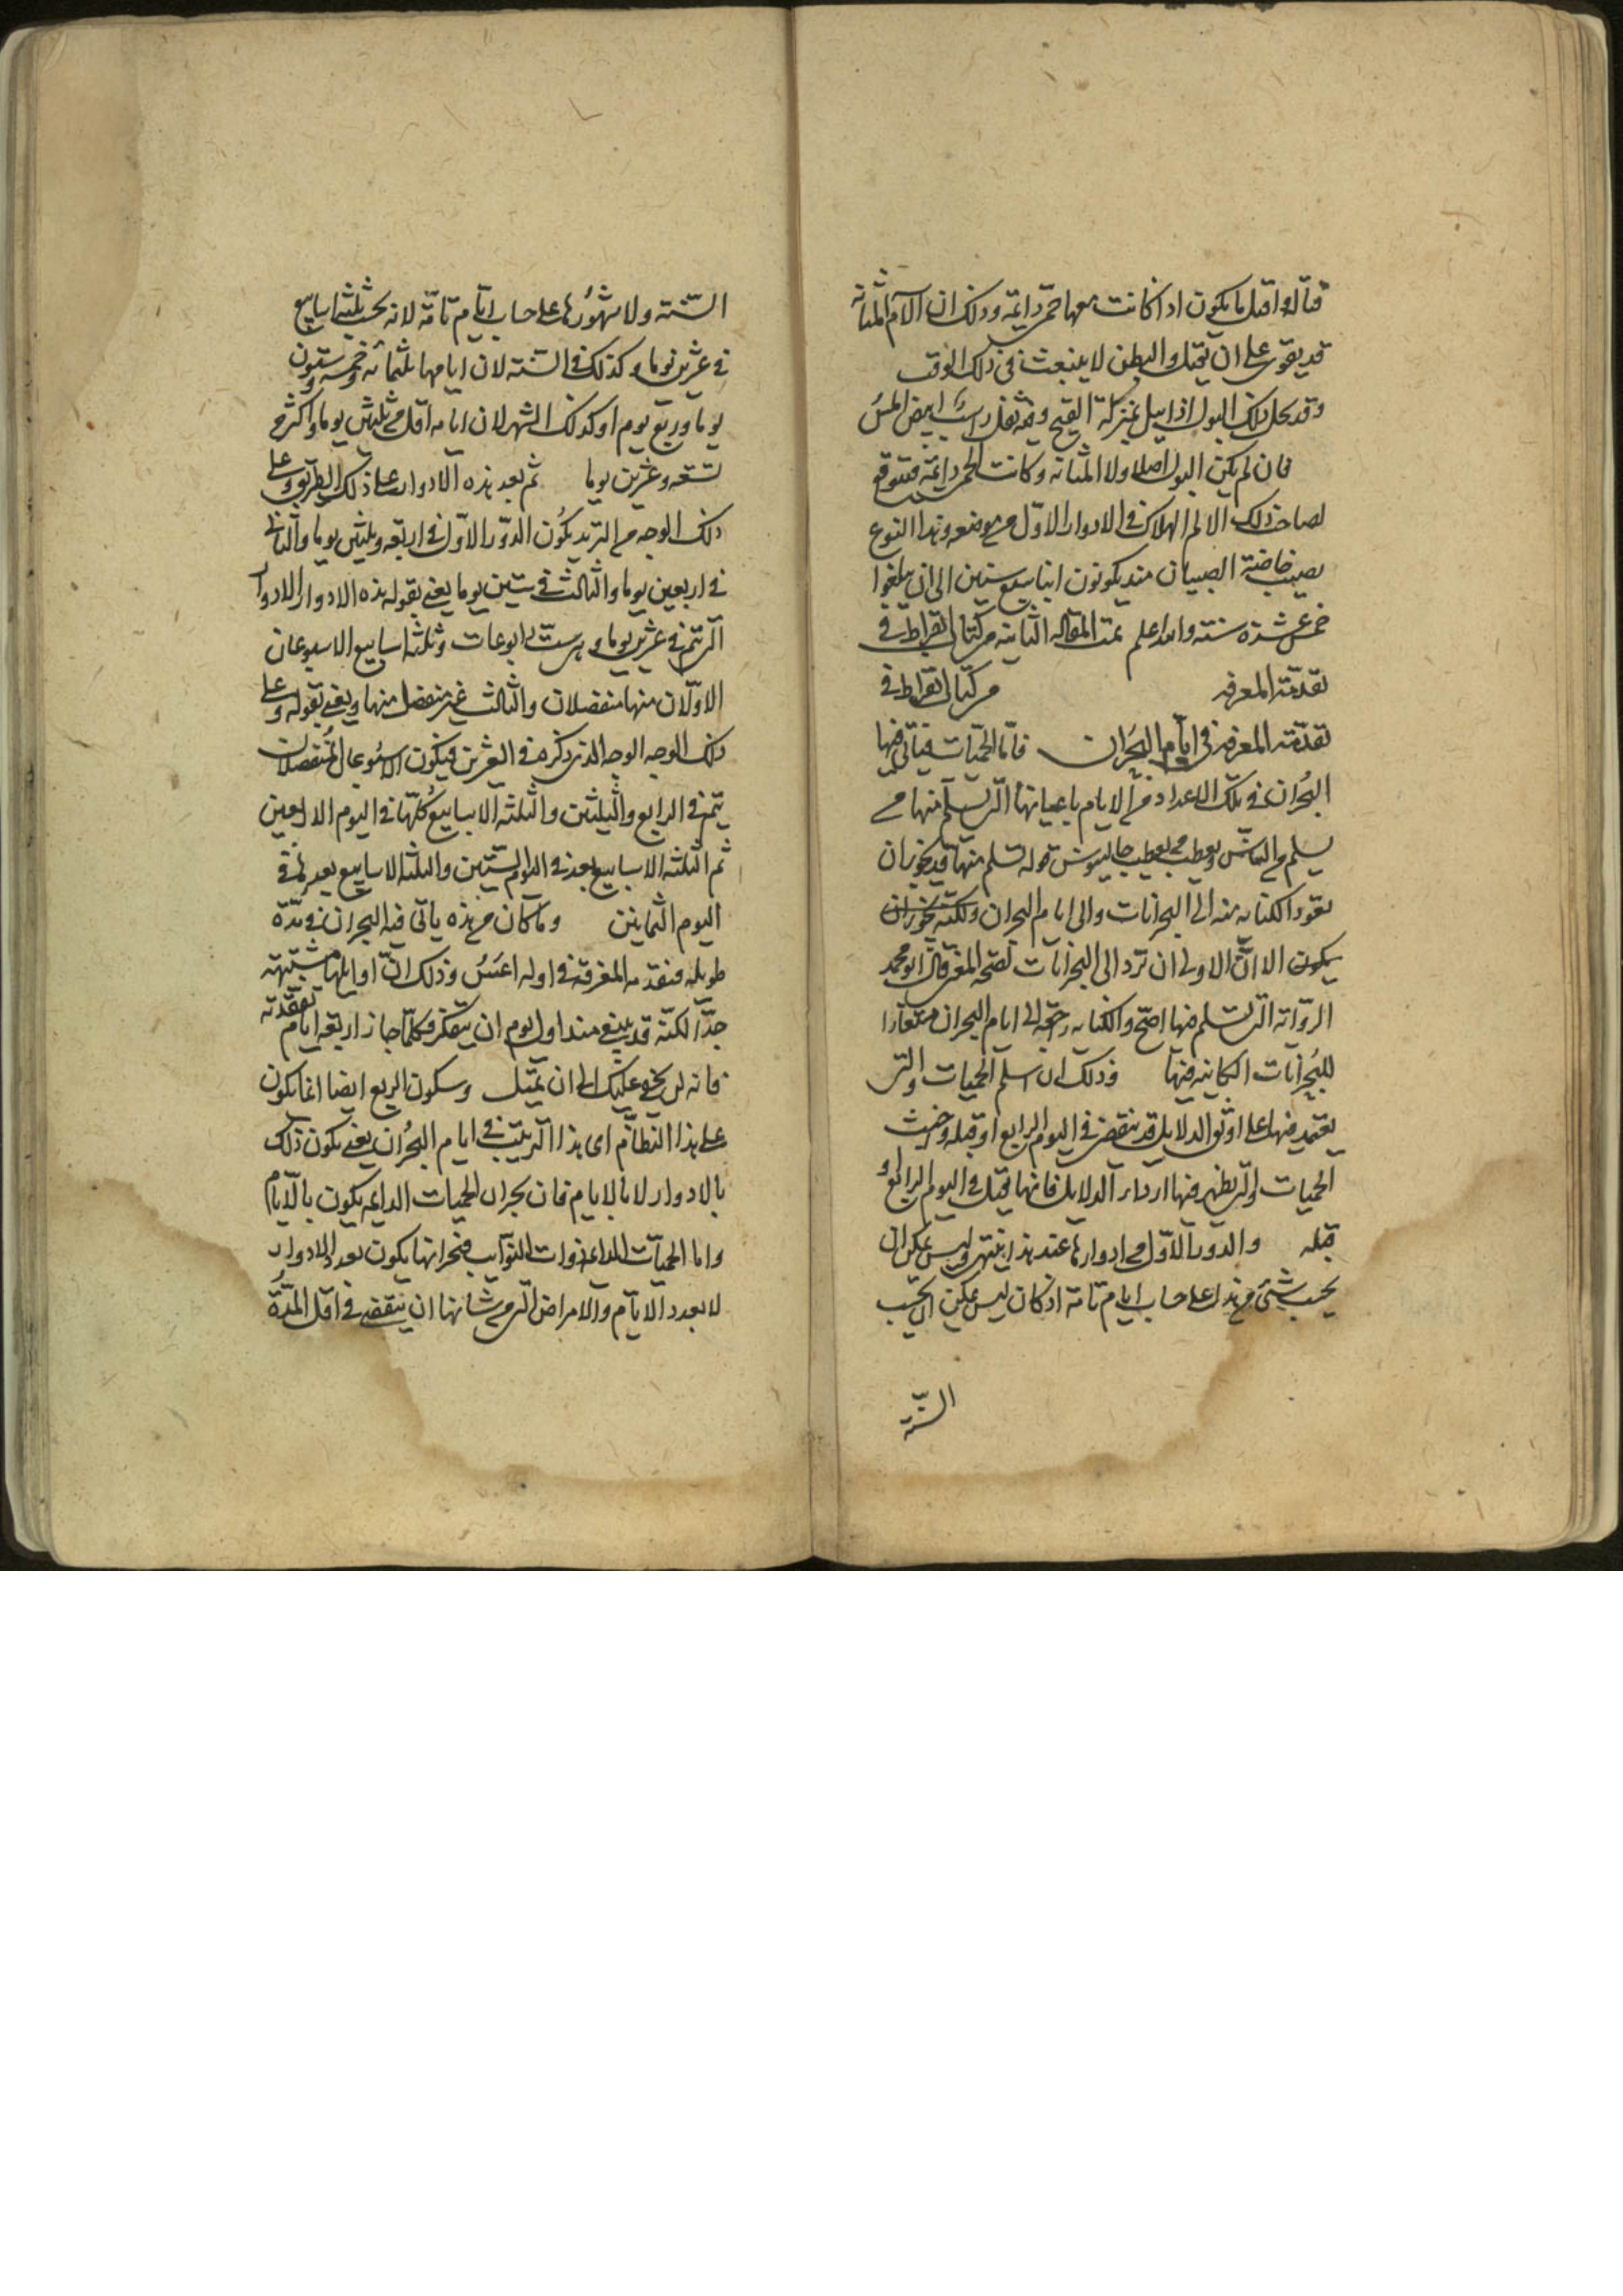 قتاله واقتل ما يكون اذا كانت معها حمى دايمة وذلك ان الآم المثانه
قد يقوى على ان يقتل والبطن لا ينبعث فى ذلك الوقت
وقد يحل ذلك البول اذا بيل بمنزلة القيح وفيه ثفل راسب ابيض املس
فان لم يكن البول اصلا ولا المثانه وكانت الحمى دايمة فتوقع
لصاحب ذلك الالم الهلاك فى الادوار الاول من موضعه وهذا النوع
يصيب خاصة الصبيان منذ يكونون ابنا سبع سنين الى ان يبلغوا
خمس عشرة سنته والله اعلم تمت المقاله الثانيه من كتاب ابقراط فى
تقدمة المعرفه من كتاب ابقراط فى
تقدمة المعرفه فى ايام البحران فاما الحميات فياتى فيها
البحران فى تلك الاعداد من الايام باعيانها التى يسلم منها من
يسلم من الناس ويعطب من يعطب جالينوس قوله تسلم منها قد يجوز ان
تعود الكنايه منه الى البحرانات والى ايام البحران ولكنه يجوز ان
يكون الا ان الاولى ان ترد الى البحرانات لصحة المعنى قال ابو محمد
الرواية التى تسلم فيها اصح والكنايه راجعه الى ايام البحران
للبحرانات الكاينه فيها وذلك ان اسلم الحميات والتى
يعتمد فيها على اوثق الدلايل قد ينقضى فى اليوم الرابع او قبله واخبث
الحميات والتى يظهر فيها اردا الدلايل فانها تقتل فى اليوم الرابع او
قبله والدور الاول من ادوارها عند هذا ينتهى وليس يمكن ان
يحسب شئ من هذا على حساب ايام تامة اذ كان ليس يمكن ان يحسب
السنة
السنته ولا شهورها على حساب ايام تامة لانه يحسب ثلثه اسابيع
فى عشرين يوما وكذلك فى السنته لان ايامها ثلثمائه وخمسه وستون
يوما وربع يوم او كذلك الشهر لان ايامه اقل من ثلثين يوما واكثر من
تسعه وعشرين يوما ثم بعد هذه الادوار على ذلك الطريق وعلى
ذلك الوجه من التزيد يكون الدور الاول فى اربعه وثلثين يوما والثانى
فى اربعين يوما والثالث فى ستين يوما يعنى بقوله هذه الادوار الادوار
التى تتم فى عشرين يوما وهى ست رابوعات وثلثه اسابيع الاسبوعان
الاولان منها منفصلان والثالث غير منفصل منها ويعنى بقوله وعلى
ذلك الوجه الوجه الذى ذكره فى العشرين فيكون الاسبوعان المنفصلان
يتم فى الرابع والثلثين والثلثه الاسابيع كلها فى اليوم الاربعين
ثم الثلثه الاسابيع بعد فى اليوم الستين والثلثه الاسابيع بعدها فى
اليوم الثمانين وما كان من هذه ياتى فيه البحران فى مدة
طويله فتقدمه المعرفة فى اوله اعسر وذلك ان اوايلها مشتبهه
جدا لكنه قد ينبغى منذ اول يوم ان يتفكر فكلما جاز اربعه ايام تفقدته
فانه لن يخفى عليك الى ان يميل وسكون الربع ايضا انما يكون
على هذا النظام اى هذا الترتيب فى ايام البحران يعنى يكون ذلك
بالادوار لا بالايام فان بحران الحميات الدايمه يكون بالايام
واما الحميات ذوات النوايب فبحرانها يكون بعدد الادوار
لا بعدد الايام والامراض التى من شانها ان ينقضى فى اقل المدة